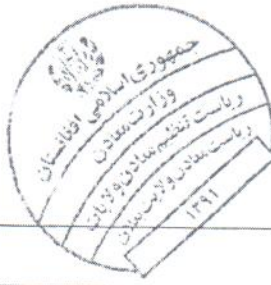 جمهوری اسلامی افغانستان
وزارت معادن
ریاست تنظیم معادن ولایات
ریاست معادن ولایت
۱۳۹۱